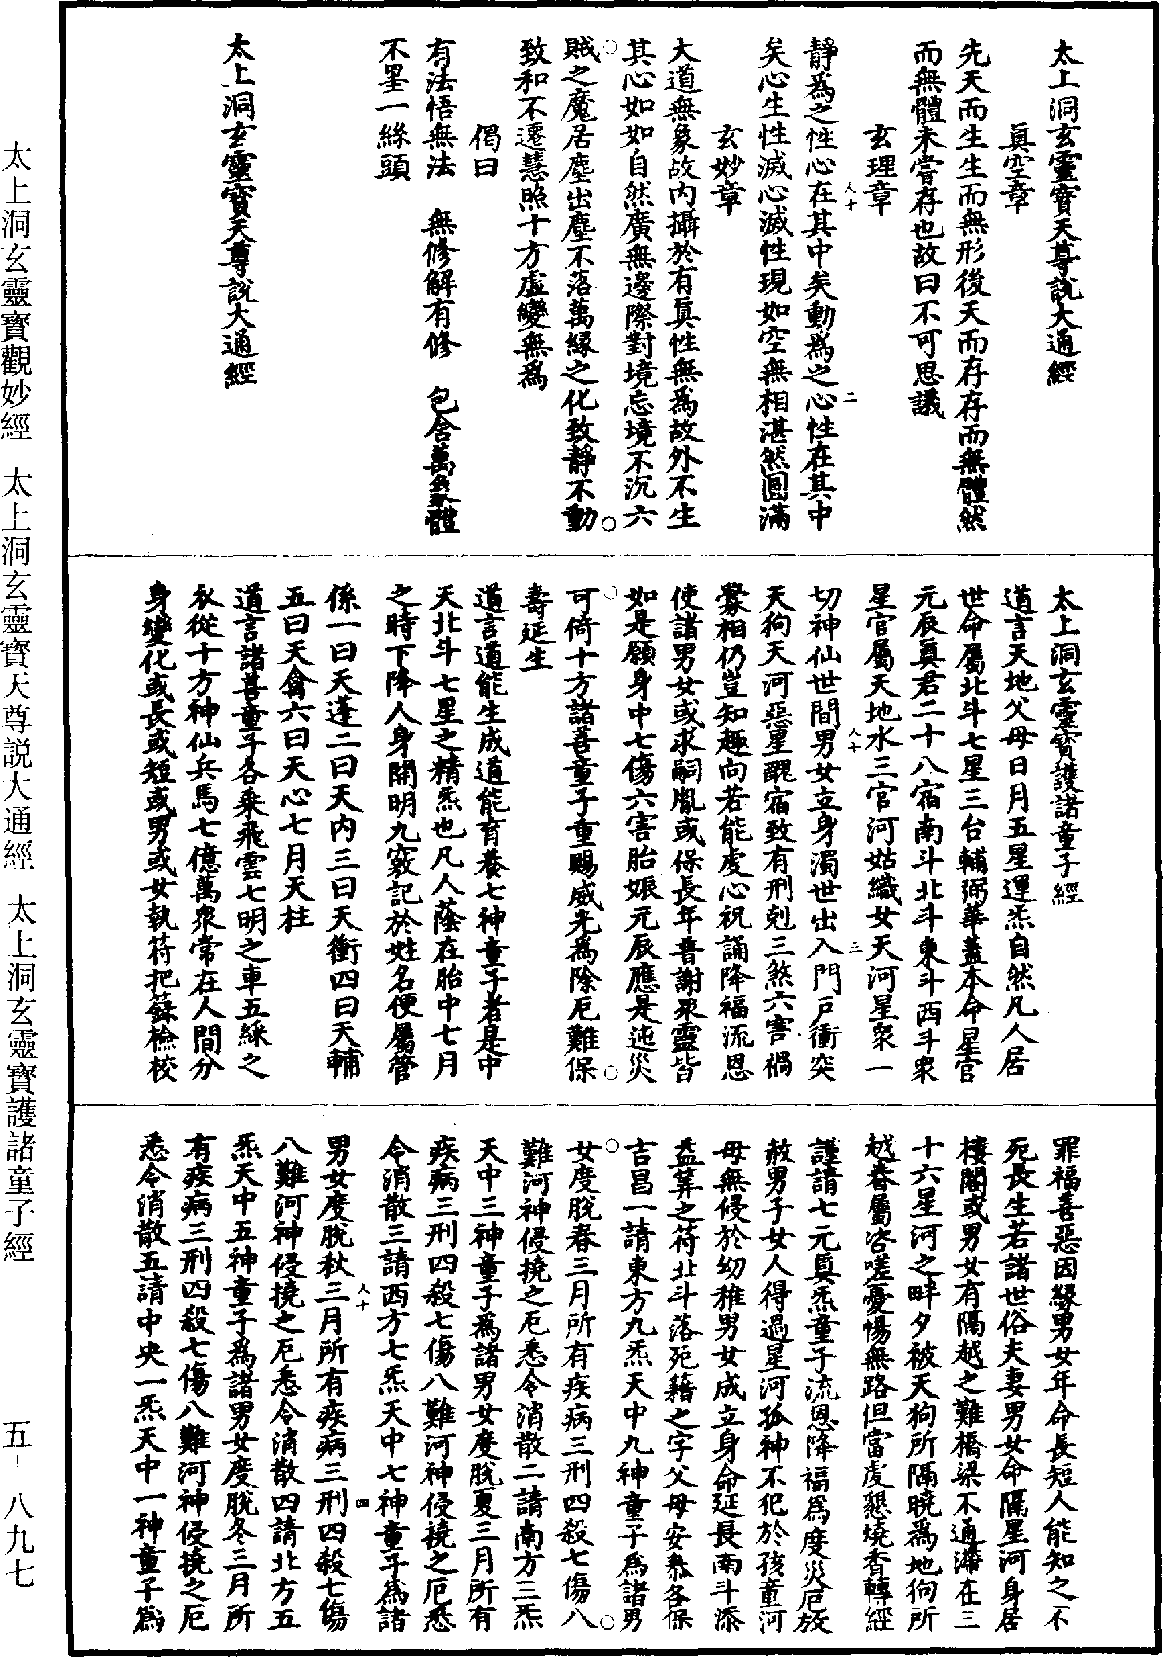 太上洞玄靈寶天尊說大通經
眞空章
先天而生生而無形後天而存存而無體然
而無體未嘗存也故曰不可思議
玄理章
靜爲之性心在其中矣動爲之心性在其中
矣心生性滅心滅性現如空無相湛然圓滿
玄妙章
大道無象故內攝於有眞性無爲故外不生
其心如如自然廣無邊際對境忘境不沉六
賊之魔居塵出塵不落萬緣之化致靜不動
致和不遷慧照十方虛變無爲
偈曰
有法悟無法 無修解有修 包含萬象體
不罣一絲頭
太上洞玄靈寶天尊說大通經
太上洞玄靈寶護諸童子經
道言天地父母日月五星運炁自然凡人居
世命屬北斗七星三台輔弼華蓋本命星官
元辰眞君二十八宿南斗北斗東斗西斗衆
星官屬天地水三官河姑織女天河星衆一
切神仙世間男女立身濁世出入門戶衝突
天狗天河惡星醜宿致有刑剋三煞六害禍
釁相仍豈知趣向若能虔心祝誦降福流恩
使諸男女或求嗣胤或保長年普謝衆靈皆
如是願身中七傷六害胎娠元辰應是迍災
可倚十方諸善童子重賜威光爲除厄難保
壽延生
道言道能生成道能育養七神童子者是中
天北斗七星之精炁也凡人蔭在胎中七月
之時下降人身開明九竅記於姓名便屬管
係一曰天蓬二曰天內三曰天衝四曰天輔
五曰天禽六曰天心七月天柱
道言諸善童子各乘飛雲七明之車五綵之
衣從十方神仙兵馬七億萬衆常在人間分
身變化或長或短或男或女執符把籙檢校
罪福善惡因緣男女年命長短人能知之不
死長生若諸世俗夫妻男女命屬星河身居
樓閣或男女有隔越之難橋梁不通滯在三
十六星河之畔夕被天狗所隔曉爲地狗所
越眷屬咨嗟憂惕無路但當虔懇燒香轉經
謹請七元眞炁童子流恩降福爲度災厄放
赦男子女人得過星河孤神不犯於孩童河
母無侵於幼稚男女成立身命延長南斗添
益筭之符北斗落死籍之字父母安泰各保
吉昌一請東方九炁天中九神童子爲諸男
女度脫春三月所有疾病三刑四殺七傷八
難河神侵撓之厄悉令消散二請南方三炁
天中三神童子爲諸男女度脫夏三月所有
疾病三刑四殺七傷八難河神侵撓之厄悉
令消散三請西方七炁天中七神童子爲諸
男女度脫秋三月所有疾病三刑四殺七傷
八難河神侵撓之厄悉令消散四請北方五
炁天中五神童子爲諸男女度脫冬三月所
有疾病三刑四殺七傷八難河神侵撓之厄
悉令消散五請中央一炁天中一神童子爲
太上洞玄靈寶觀妙經 太上洞玄靈寶天尊説大通經 太上洞玄靈寶護諸童子經 五-八九七